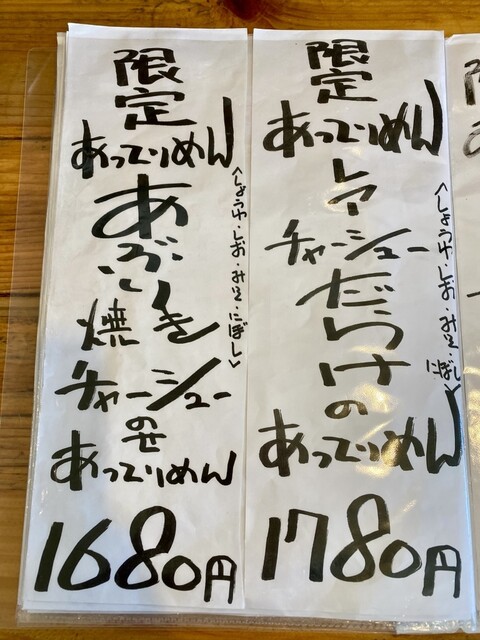 限定
あってりめん
レア
チャーシュー
だらけ
の
あってりめん
<しょうゆ・しお・みそ・にぼし>
1780円
限定
あってりめん
あぶり
焼き
チャーシュー
のせ
あってりめん
<しょうゆ・しお・みそ・にぼし>
1680円